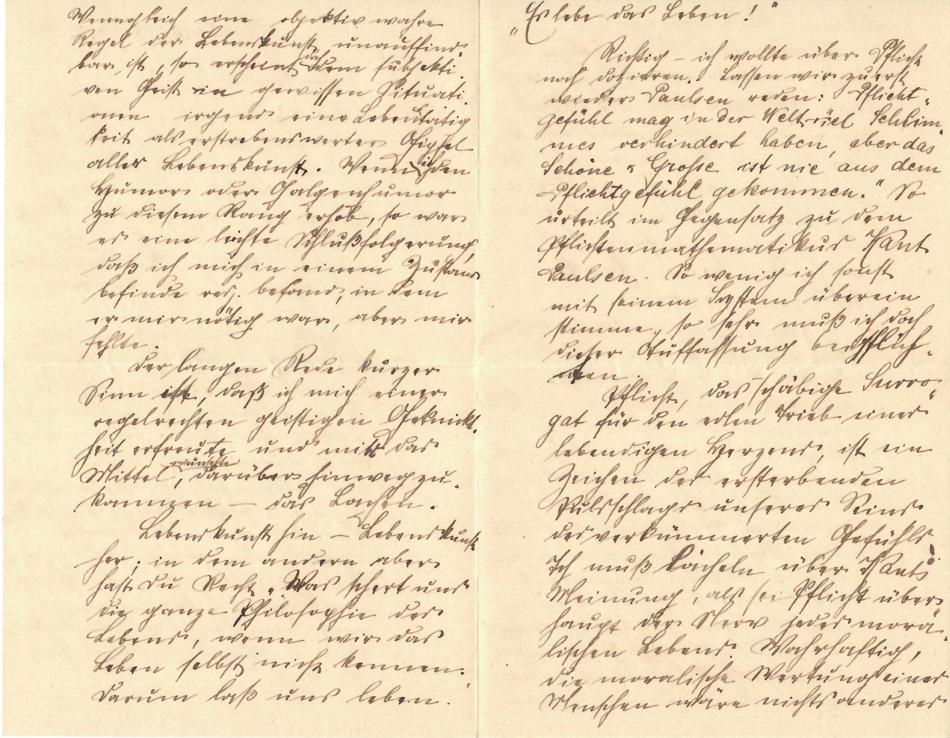 Wenngleich eine objektiv wahre
Regel der Lebenskunst unauffind-
bar ist, so erscheint doch dem subjekti-
ven Geist in gewissen Situati-
onen irgend eine Lebenstätig-
keit als erstrebenswerter Gipfel
aller Lebenskunst. Wenn ich den
Humor oder Galgenhumor
zu diesem Rang erhob, so war
es eine leichte Schlußfolgerung,
daß ich mich in einem Zustand
befinde resp. befand, in dem
er mir nötig war, aber mir
fehlte.
Der langen Rede kurzer
Sinn ist, daß ich mich einer
regelrechten geistigen Geknickt-
heit erfreute und mir das
Mittel wünschte, darüber hinwegzu-
kommen – das Lachen.
Lebenskunst hin – Lebenskunst
her; in dem andern aber
hast Du Recht „Was schert uns
die ganze Philosophie des
Lebens, wenn wir das
Leben selbst nicht kennen.
Darum laß uns leben.
Es lebe das Leben!"
Richtig – ich wollte über Pflicht
noch dozieren. Lassen wir zuerst
wieder Paulsen reden: „Pflicht-
gefühl mag in der Welt viel Schlim-
mes verhindert haben, aber das
Schöne u Grosse ist nie aus dem
Pflichtgefühl gekommen." So
urteilt im Gegensatz zu dem
Pflichtenmathematikus Kant
Paulsen. So wenig ich sonst
mit seinem System überein
stimme, so sehr muß ich doch
dieser Auffassung beipflich-
ten.
Pflicht, das schäbige Surro-
gat für den edlen Trieb eines
lebendigen Herzens, ist ein
Zeichen des ersterbenden
Pulsschlags unseres Seins
des verkümmerten Gefühls.
Ich muß lächeln über Kants
Meinung, als sei Pflicht über-
haupt der Nerv jedes mora-
lischen Lebens. Wahrhaftig,
die moralische Wertung eines
Menschen wäre nichts anderes